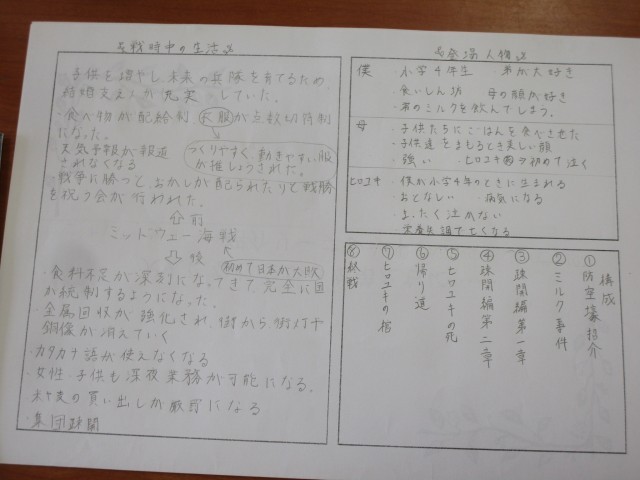 戦時中の生活
子供を増やし、未来の兵隊を育てるため
結婚支えが充実していた。
・食べ物が配給制 衣服が点数切符制
になった。
・天気予報が報道
されなくなる
つくりやすく、動きやすい服
が推しょうされた。
・戦争に勝つと、おかしが配られたりと戦勝
を祝う会が行われた。
⇧前
ミッドウェー海戦
⇩後
初めて日本が大敗
・食料不足が深刻になってきて完全に国
が統制するようになった。
・金属回収が強化され、街から街灯や
銅像が消えていく
・カタカナ語が使えなくなる
・女性 子供も深夜業務が可能になる。
・米や麦の買い出しが厳罰になる
・集団疎開
登場人物
僕
・小学4年生 ・弟が大好き
・食いしん坊 ・母の顔が好き
・弟のミルクを飲んでしまう。
母
・子供たちにごはんを食べさせた
・子供達をまもるとき美しい顔
・強い ・ヒロユキ 初めて泣く
ヒロユキ
・僕が小学4年のときに生まれる
・おとなしい ・病気になる
・まったく泣かない
・栄養失調で亡くなる
構成
①防空壕紹介
②ミルク事件
③疎開編第一章
④疎開編第二章
⑤ヒロユキの死
⑥帰り道
⑦ヒロユキの棺
⑧終戦